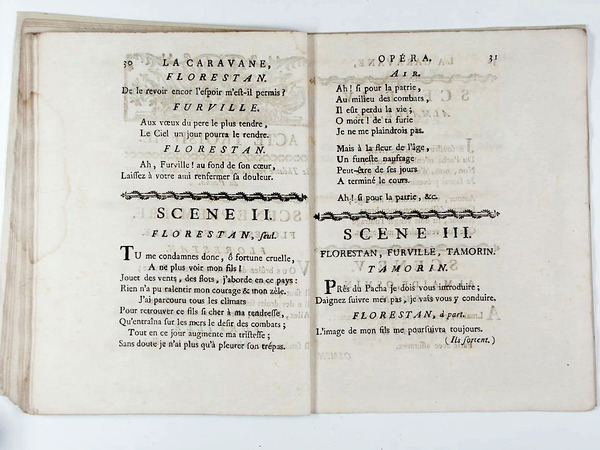 30 LA CARAVANE,
FLORESTAN.
De le revoir encor l'espoir m'est-il permis?
FURVILLE.
Aux vœux du pere le plus tendre,
Le Ciel un jour pourra le rendre.
FLORESTAN.
Ah, Furville! au fond de son cœur,
Laissez à votre ami renfermer sa douleur.
SCENE II.
FLORESTAN, seul.
TU me condamnes donc, ô fortune cruelle,
A ne plus voir mon fils!
Jouet des vents, des flots, j'aborde en ce pays:
Rien n'a pu ralentir mon courage & mon zèle.
J'ai parcouru tous les climats
Pour retrouver ce fils si cher à ma tendresse,
Qu'entraîna sur les mers le desir des combats;
Tout en ce jour augmente ma tristesse;
Sans doute je n'ai plus qu'à pleurer son trépas.
OPÉRA. 31
AIR.
Ah! si pour la patrie,
Au milieu des combats,
Il eût perdu la vie;
O mort! de ta furie
Je ne me plaindrois pas.
Mais à la fleur de l'âge,
Un funeste naufrage
Peut-être de ses jours
A terminé le cours.
Ah! si pour la patrie, &c.
SCENE III.
FLORESTAN, FURVILLE, TAMORIN.
TAMORIN.
PRès du Pacha je dois vous introduire;
Daignez suivre mes pas, je vais vous y conduire.
FLORESTAN, à part.
L'image de mon fils me poursuivra toujours.
(Ils sortent.)